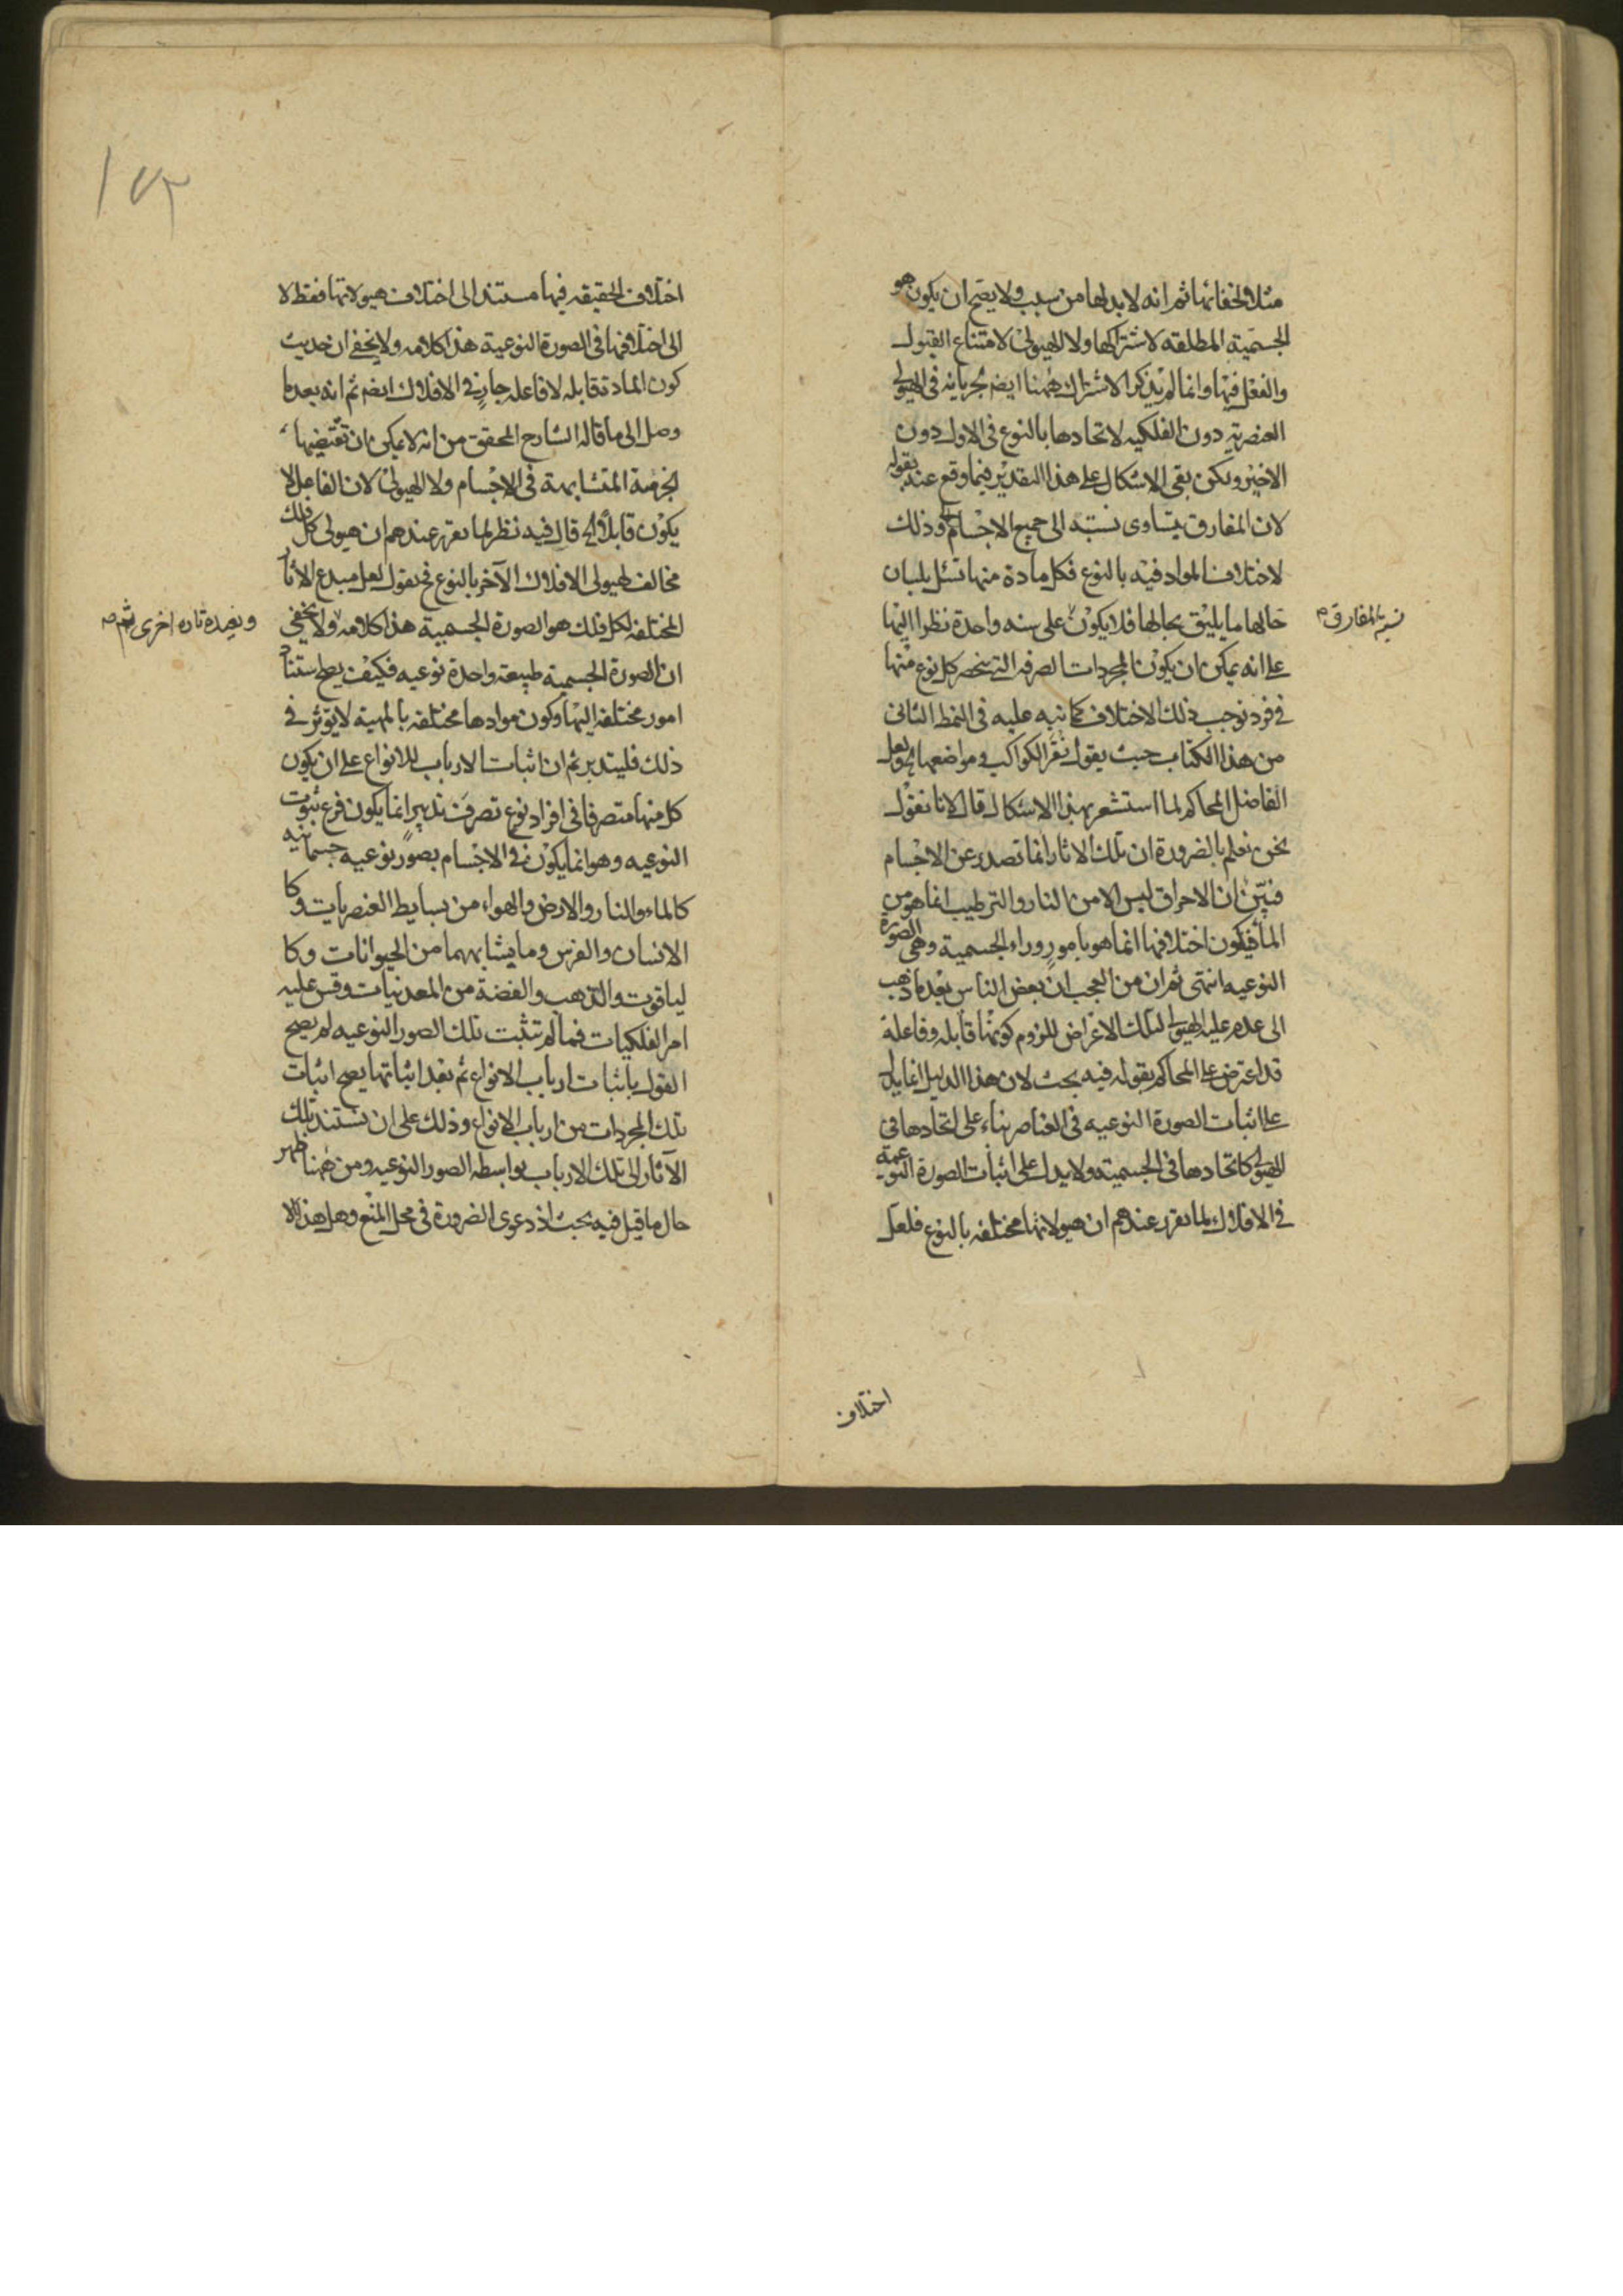 مثلا لخفائها ثم انه لابد لها من سبب ولا يصح ان يكون هو
الجسمية المطلقة لاشتراكها ولا الهيولى لامتناع القبول
والفعل فيها وانما لم يذكر الاشتراك ههنا ايضا لجريانه فى الهيولى
العنصرية دون الفلكيه لاتحادها بالنوع فى الاول دون
الاخير ولكن بقى الاشكال على هذا التقدير فيما وقع عنه بقوله
لان المفارق يتساوى نسبته الى جميع الاجسام وذلك
لاختلاف المواد فيه بالنوع فكل مادة منها تسئل بلسان
حالها ما يليق بحالها فلا يكون على سنه واحدة نظرا اليها
نسبة المفارق
على انه يمكن ان يكون المجردات الصرفه التى ينحصر كل نوع منها
فى فرد توجب ذلك الاختلاف كما نبه عليه فى النمط الثانى
من هذا الكتاب حيث يقول نقر الكواكب فى مواضعها ولعل
الفاضل المحاكم لما استشعر بهذا الاشكال قال لانا نقول
نحن نعلم بالضرورة ان تلك الاثار انما تصدر عن الاجسام
فتبين ان الاحراق ليس الا من النار والترطيب انما هو من
الماء فيكون اختلافها انما هو بامور وراء الجسمية وهى الصورة
النوعيه انتهى ثم ان من العجب ان بعض الناس بعد ما ذهب
الى عدم علية الهيولى لتلك الاعراض للزوم كونها قابلة وفاعلة
قد اعترض على المحاكم بقوله فيه بحث لان هذا الدليل انما يدل
على اثبات الصورة النوعيه فى العناصر بناء على اتحادها فى
الهيولى كاتحادها فى الجسمية ولا يدل على اثبات الصورة النوعية
فى الافلاك لما تقرر عندهم ان هيولاتها مختلفة بالنوع فلعل
اختلاف
اختلاف الحقيقه فيها مستند الى اختلاف هيولاتها فقط لا
الى اختلافها فى الصورة النوعية هذا كلامه ولا يخفى ان حديث
كون المادة قابله لا فاعله جار فى الافلاك ايضا ثم انه بعد ما
وصل الى ما قاله الشارح المحقق من انه لا يمكن ان تقتضيها
الجرمية المتشابهة فى الاجسام ولا الهيولى لان الفاعل لا
يكون قابلا الخ قال فيه نظر لما تقرر عندهم ان هيولى كل فلك
مخالف لهيولى الافلاك الآخر بالنوع فح نقول لعل مبدء الاثار
المختلفة لكل فلك هو الصورة الجسمية هذا كلامه ولا يخفى
ويفيدة تارة اخرى
ان الصورة الجسمية طبيعة واحدة نوعيه فكيف يصح استناد
امور مختلفة اليها وكون موادها مختلفه بالمهية لا يؤثر فى
ذلك فليتدبر ثم ان اثبات الارباب للانواع على ان يكون
كل منها متصرفا فى افراد نوع تصرف تدبير انما يكون فرع ثبوت
النوعيه وهو انما يكون فى الاجسام بصور نوعيه جسمانيه
كالماء والنار والارض والهواء من بسايط العنصريات وكا
الانسان والفرس وما يشابههما من الحيوانات وكا
لياقوت والذهب والفضة من المعدنيات وقس عليه
امر الفلكيات فما لم تثبت تلك الصور النوعيه لم يصح
القول باثبات ارباب الانواع ثم بعد اثباتها يصح اثبات
تلك المجردات من ارباب الانواع وذلك على ان تستند تلك
الآثار الى تلك الارباب بواسطه الصور النوعيه ومن ههنا ظهر
حال ما قيل فيه بحث اذ دعوى الضرورة فى محل المنع وهل هذا الا